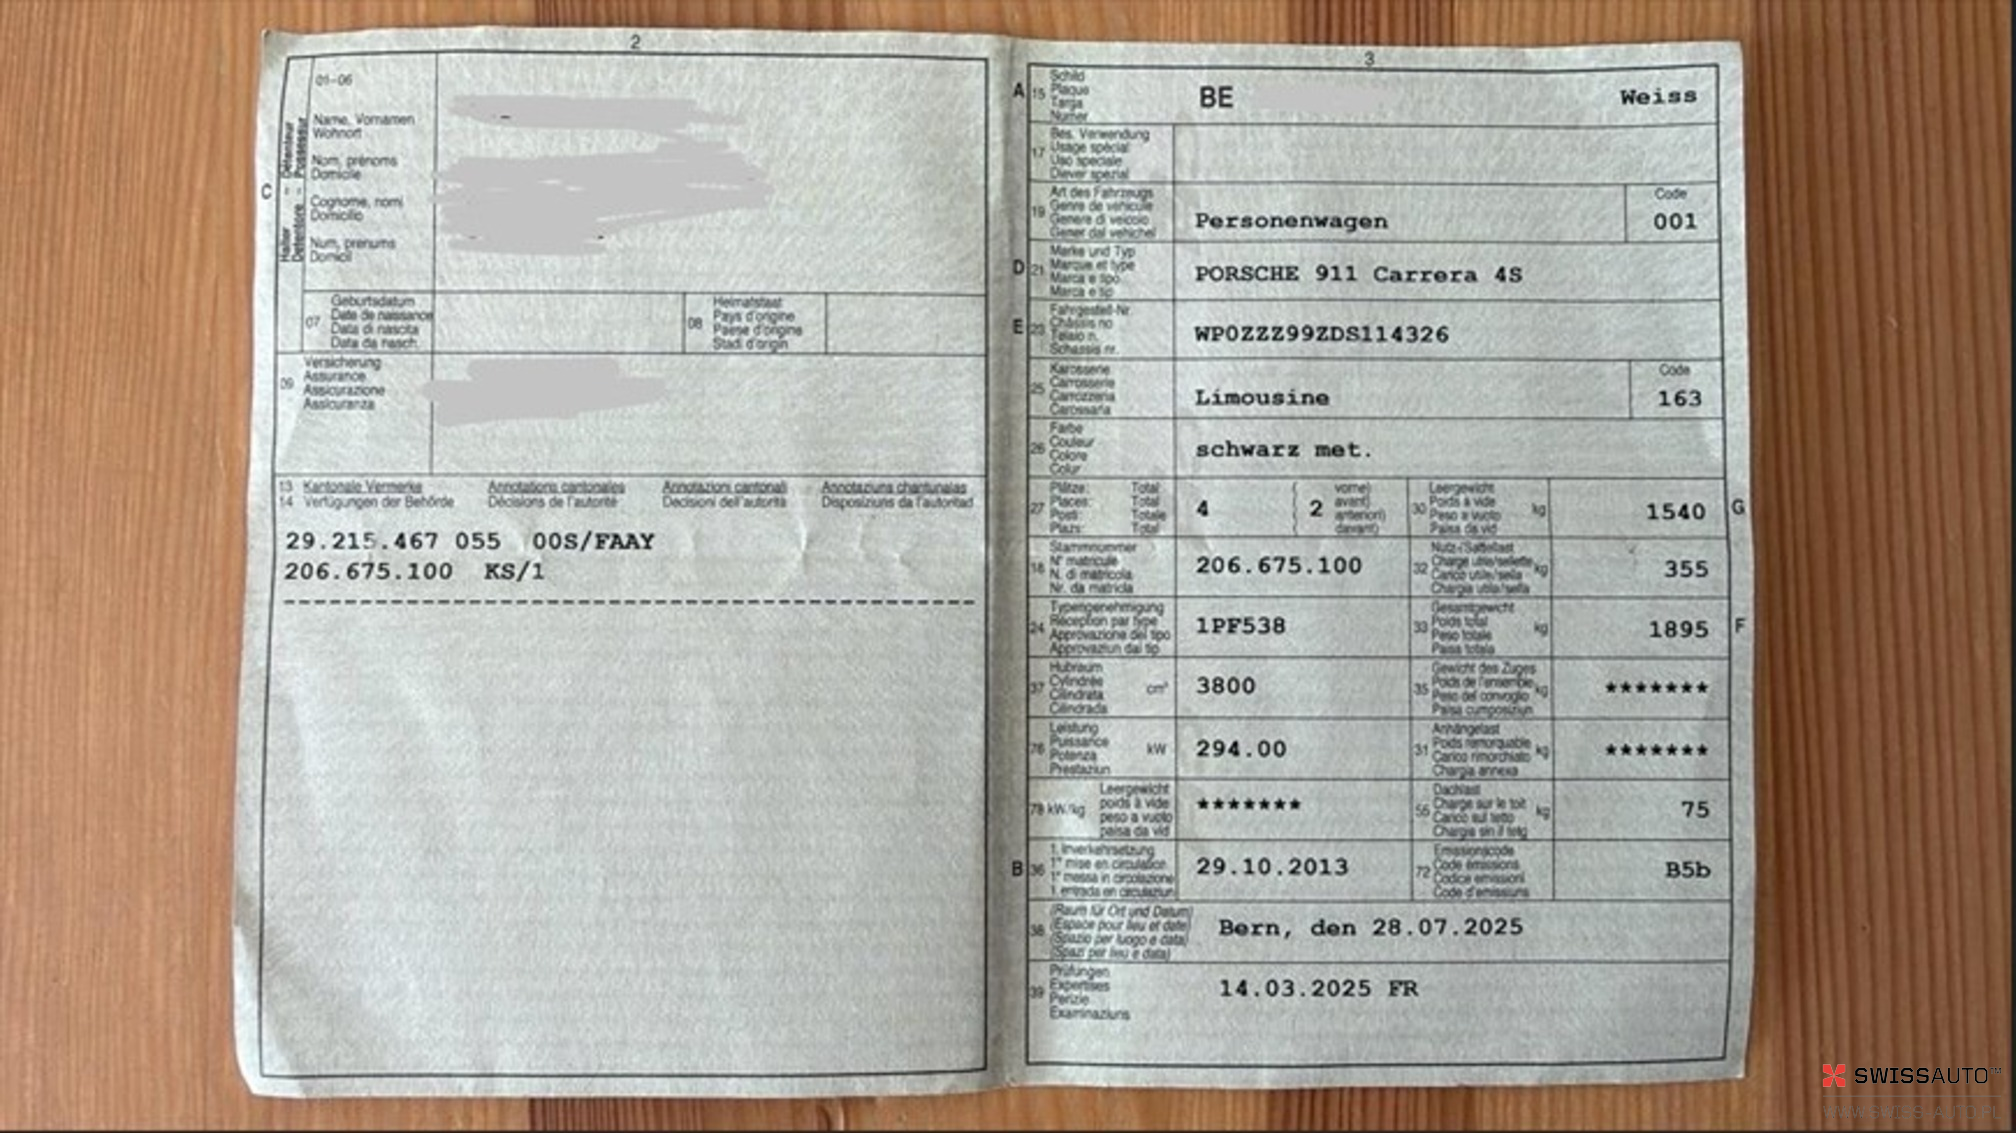 2
01-06
C
Halter - Détenteur
Detentore - Possessur
Name, Vornamen
Wohnort
Nom, prénoms
Domicile
Cognome, nomi
Domicilio
Num, prenums
Domicil
07
Geburtsdatum
Date de naissance
Data di nascita
Data da nasch.
08
Heimatstaat
Pays d'origine
Paese d'origine
Stadi d'origin
09
Versicherung
Assurance
Assicurazione
Assicuranza
13 Kantonale Vermerke Annotations cantonales Annotazioni cantonali Annotaziuns chantunalas
14 Verfügungen der Behörde Décisions de l'autorité Decisioni dell'autorità Disposiziuns da l'autoritad
29.215.467 055 00S/FAAY
206.675.100 KS/1
3
A 15
Schild
Plaque
Targa
Numer
BE
Weiss
17
Bes. Verwendung
Usage spécial
Uso speciale
Diever spezial
19
Art des Fahrzeugs
Genre de véhicule
Genere di veicolo
Gener dal vehichel
Personenwagen
Code
001
D 21
Marke und Typ
Marque et type
Marca e tipo
Marca e tip
PORSCHE 911 Carrera 4S
E 23
Fahrgestell-Nr.
Châssis no
Telaio n.
Schassis nr.
WP0ZZZ99ZDS114326
25
Karosserie
Carrosserie
Carrozzeria
Carossaria
Limousine
Code
163
26
Farbe
Couleur
Colore
Colur
schwarz met.
27
Plätze: Total
Places: Total
Posti: Totale
Plazs: Total
4
2
vorne)
avant)
anteriori)
davant)
30
Leergewicht
Poids à vide
Peso a vuoto
Paisa da vid
kg
1540
G
18
Stammnummer
N° matricule
N. di matricola
Nr. da matricla
206.675.100
32
Nutz-/Sattellast
Charge utile/sellette
Carico utile/sella
Chargia utila/sella
kg
355
24
Typengenehmigung
Réception par type
Approvazione del tipo
Approvaziun dal tip
1PF538
33
Gesamtgewicht
Poids total
Peso totale
Paisa totala
kg
1895
F
37
Hubraum
Cylindrée
Cilindrata
Cilindrada
cm³
3800
35
Gewicht des Zuges
Poids de l'ensemble
Peso del convoglio
Paisa cumposiziun
kg
*******
76
Leistung
Puissance
Potenza
Prestaziun
kW
294.00
31
Anhängelast
Poids remorquable
Carico rimorchiato
Chargia annexa
kg
*******
78 kW/kg
Leergewicht
poids à vide
peso a vuoto
paisa da vid
*******
55
Dachlast
Charge sur le toit
Carico sul tetto
Chargia sin il tetg
kg
75
B 36
1. Inverkehrsetzung
1re mise en circulation
1a messa in circolazione
1. entrada en circulaziun
29.10.2013
72
Emissionscode
Code émissions
Codice emissioni
Code d'emissiuns
B5b
38
(Raum für Ort und Datum)
(Espace pour lieu et date)
(Spazio per luogo e data)
(Spazi per lieu e data)
Bern, den 28.07.2025
39
Prüfungen
Expertises
Perizie
Examinaziuns
14.03.2025 FR
SWISSAUTO™
WWW.SWISS-AUTO.PL